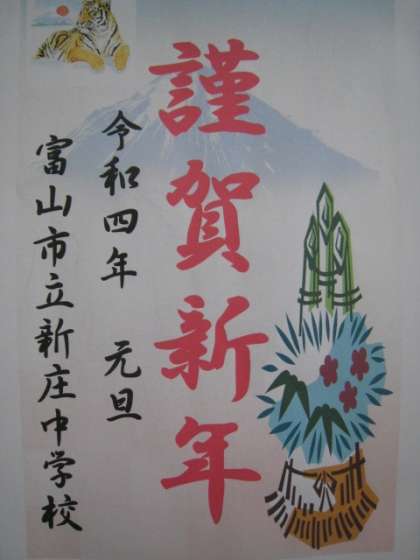 謹賀新年
令和四年 元旦
富山市立新庄中学校